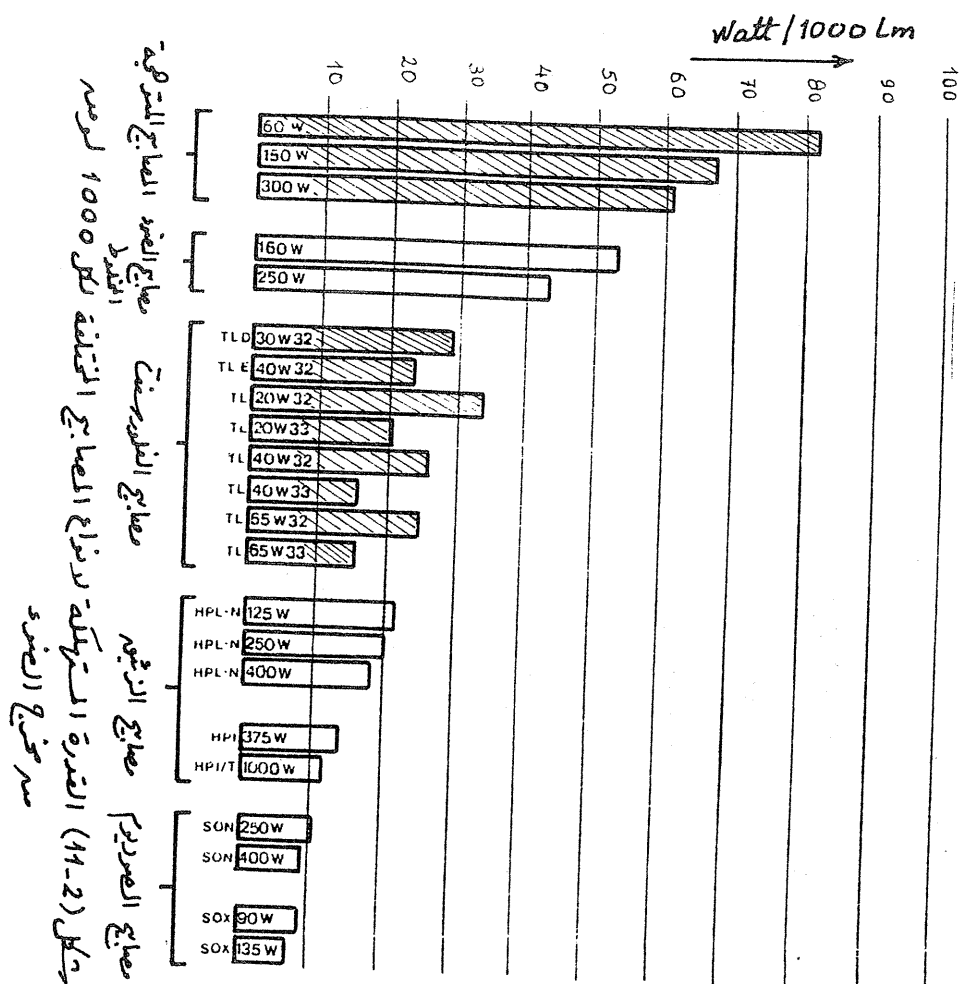 Watt/1000 Lm
10
20
30
40
50
60
70
80
90
100
المصابيح المتوهجة
60 W
150 W
300 W
مصابيح الضوء
المختلط
160 W
250 W
مصابيح الفلورسنت
TLD 30W32
TLE 40W32
TL 20W32
TL 20W33
TL 40W32
TL 40W33
TL 65W32
TL 65W33
مصابيح الزئبق
HPL-N 125W
HPL-N 250W
HPL-N 400W
HPI 375W
HPI/T 1000W
مصابيح الصوديوم
SON 250W
SON 400W
SOX 90W
SOX 135W
شكل (11-2) القدرة المستهلكة لانواع المصابيح المختلفة لكل 1000 لومن
من فيض الضوء